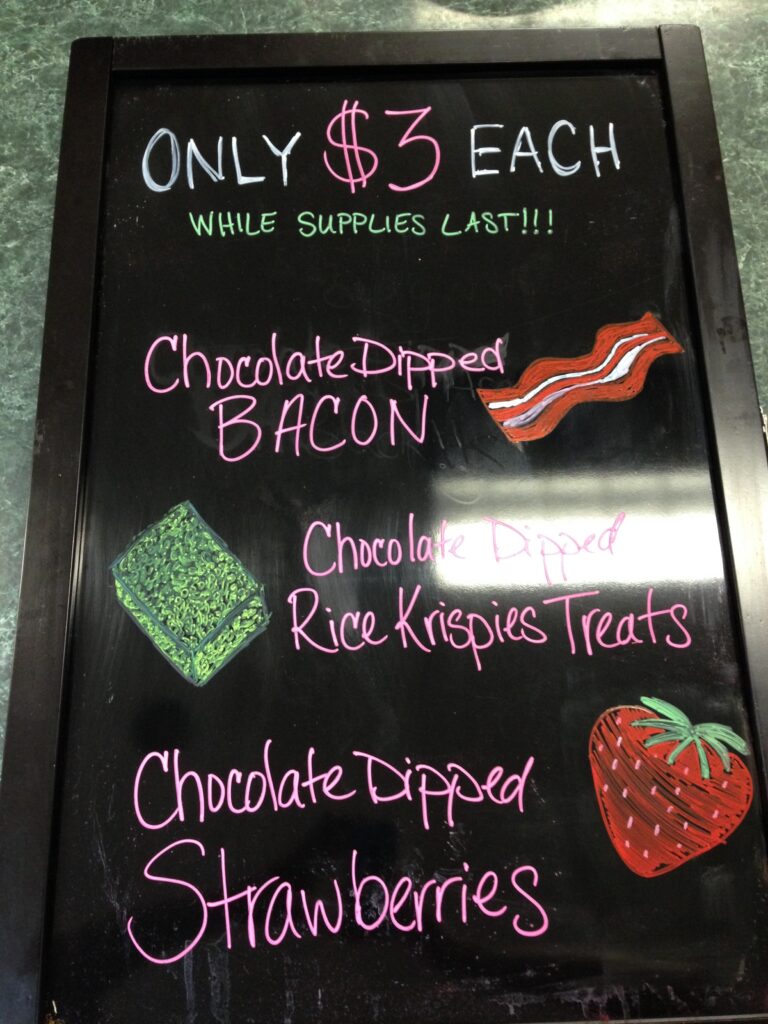 ONLY $3 EACH
WHILE SUPPLIES LAST!!!
Chocolate Dipped
BACON
Chocolate Dipped
Rice Krispies Treats
Chocolate Dipped
Strawberries